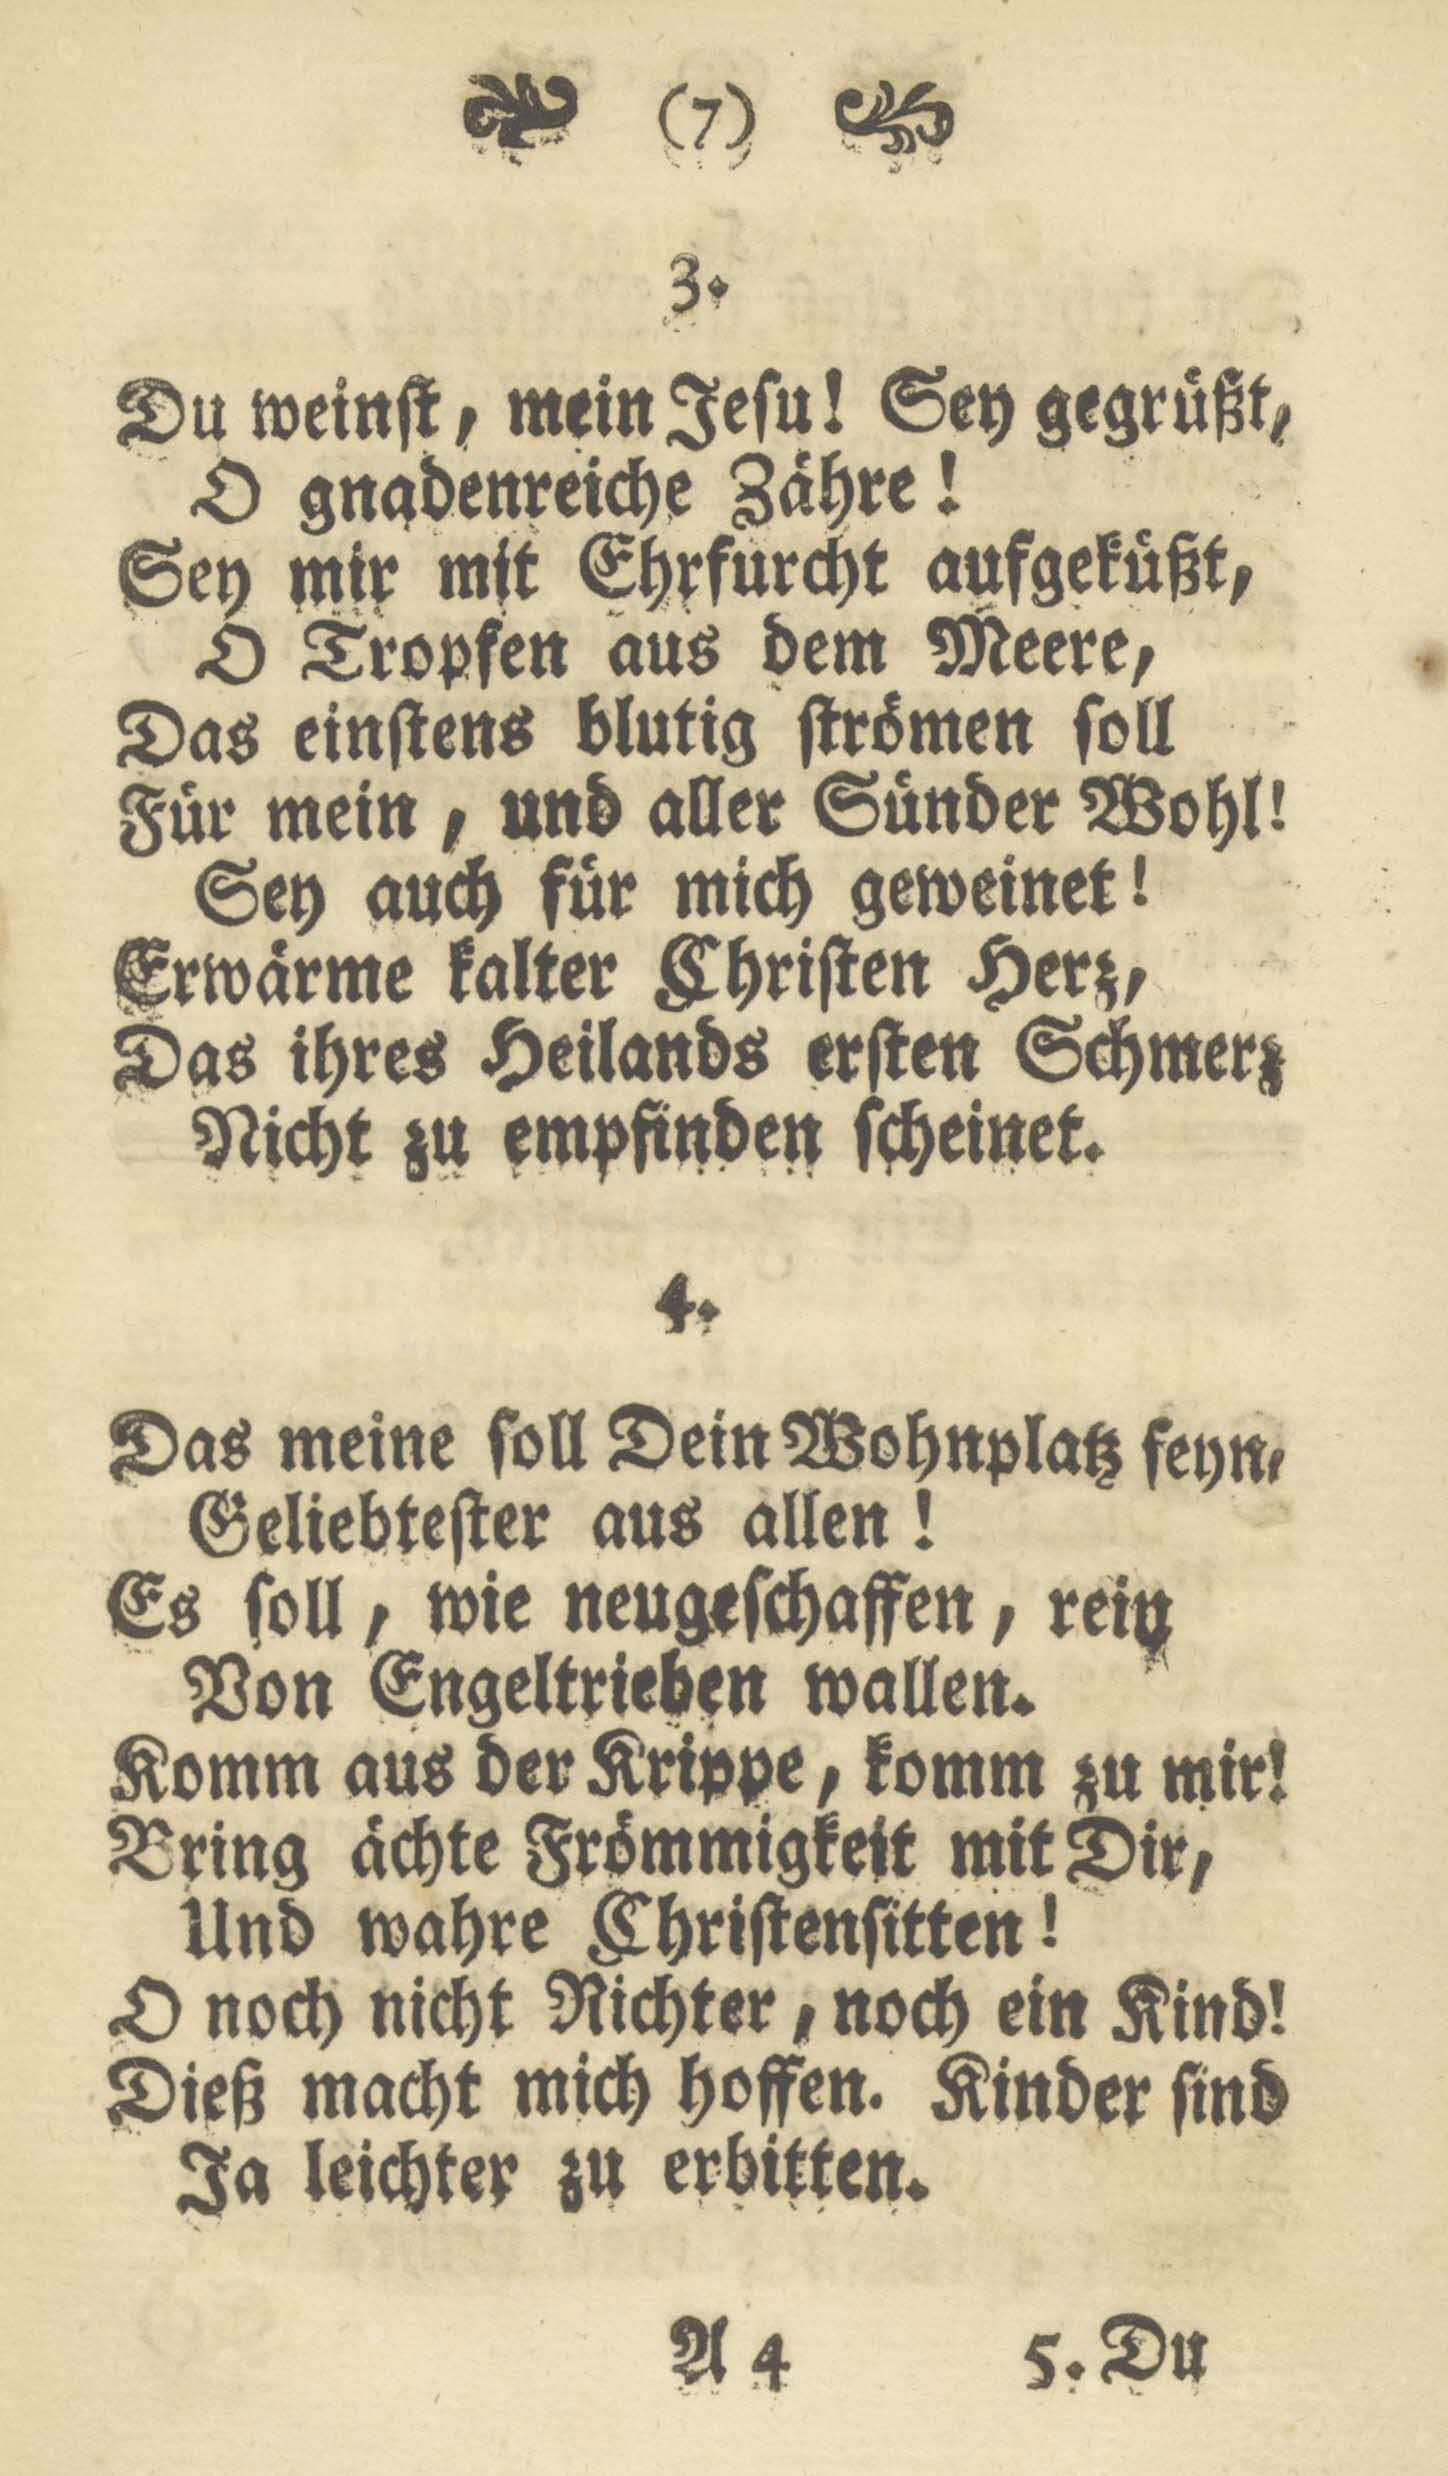 (7)
3.
Du weinſt, mein Jeſu! Sey gegrüßt,
O gnadenreiche Zähre!
Sey mir mit Ehrfurcht aufgeküßt,
O Tropfen aus dem Meere,
Das einſtens blutig ſtrömen ſoll
Für mein, und aller Sünder Wohl!
Sey auch für mich geweinet!
Erwärme kalter Chriſten Herz,
Das ihres Heilands erſten Schmerz
Nicht zu empfinden ſcheinet.
4.
Das meine ſoll Dein Wohnplatz ſeyn,
Geliebteſter aus allen!
Es ſoll, wie neugeſchaffen, rein
Von Engeltrieben wallen.
Komm aus der Krippe, komm zu mir!
Bring ächte Frömmigkeit mit Dir,
Und wahre Chriſtenſitten!
O noch nicht Richter, noch ein Kind!
Dieß macht mich hoffen. Kinder ſind
Ja leichter zu erbitten.
A 4 5. Du